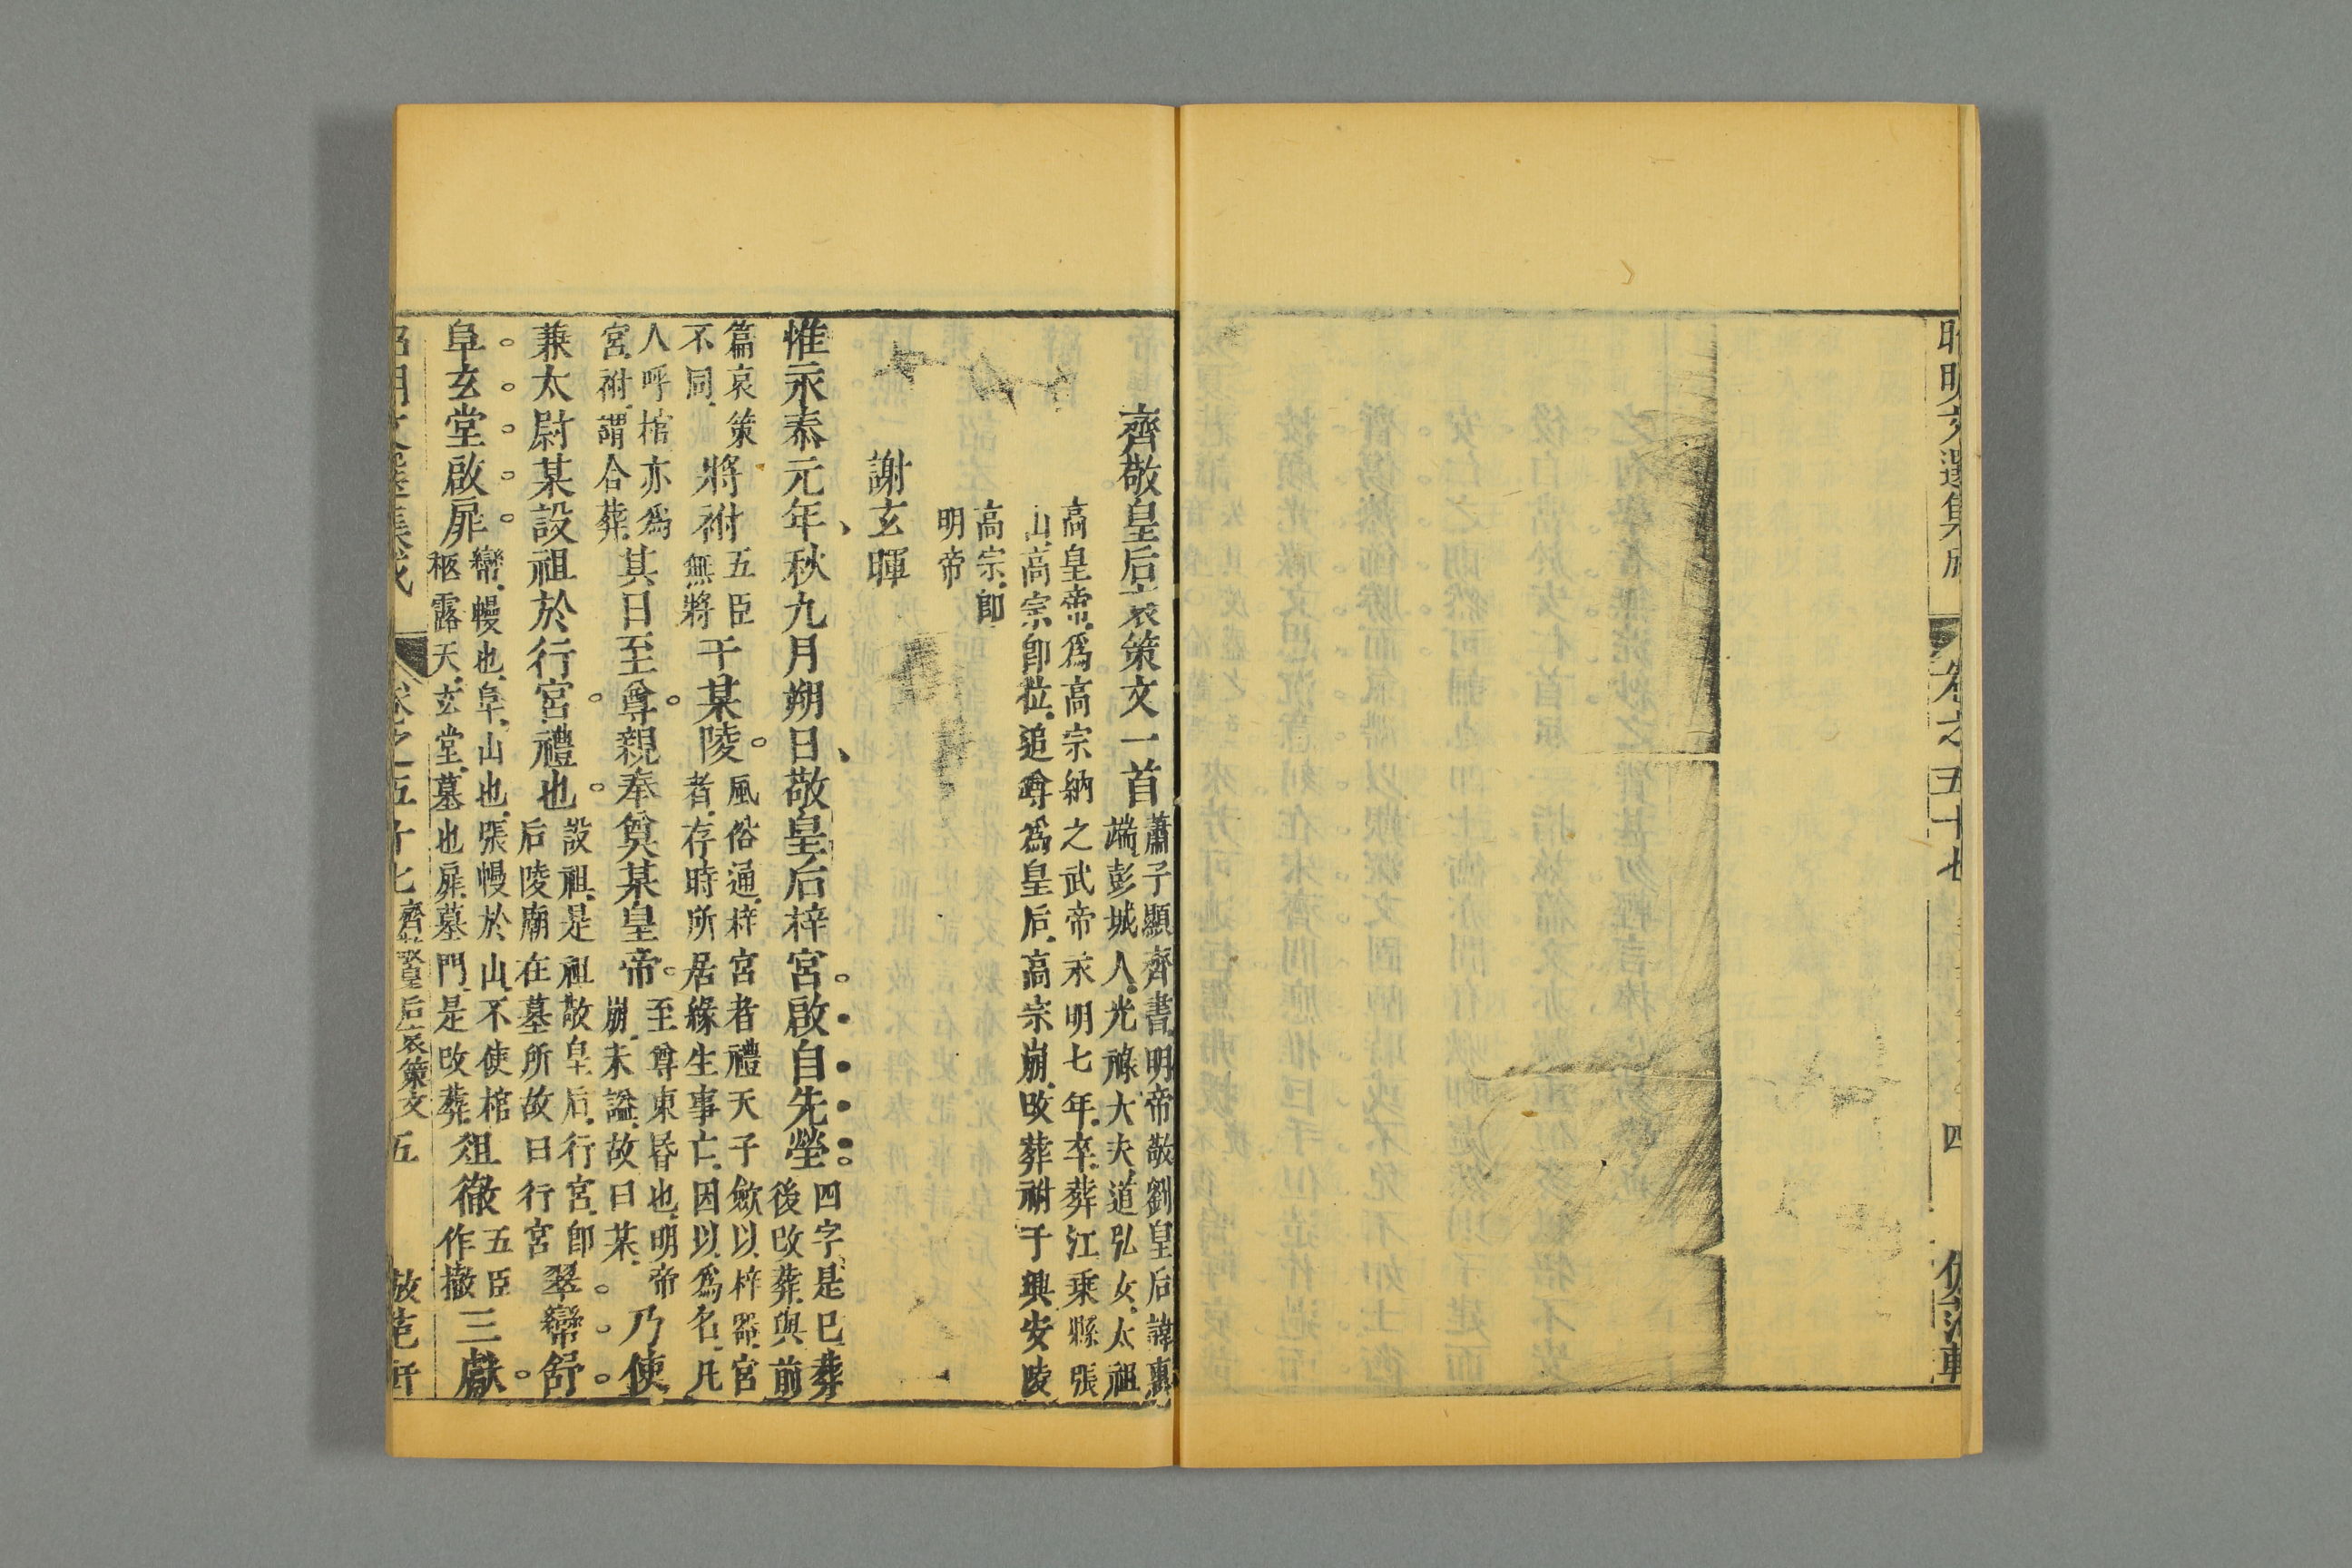 昭明文選集成
卷之五十七
四
齊敬皇后哀策文一首
蕭子顯齊書明帝敬劉皇后諱惠
端彭城人光祿大夫道弘女太祖
高皇帝為高宗納之武帝永明七年卒葬江乘縣張
山高宗卽位追尊為皇后高宗崩改葬祔于興安陵
高宗卽
明帝
謝玄暉
惟永泰元年秋九月朔日敬皇后梓宮啟自先塋
四字是已葬
後改葬與前
篇哀策
不同
將祔
五臣
無將
于某陵
風俗通梓宮者禮天子斂以梓器宮
者存時所居緣生事亡因以為名凡
人呼棺亦為
宮祔謂合葬
其日至尊親奉奠某皇帝
至尊東昏也明帝
崩未謚故曰某
乃使
兼太尉某設祖於行宮禮也
設祖是祖敬皇后行宮卽
后陵廟在墓所故曰行宮
翠帟舒
阜玄堂啟扉
帟幔也阜山也張幔於山不使棺
柩露天玄堂墓也扉墓門是改葬
俎徹
五臣
作撤
三獻
昭明文選集成
卷之五十七
齊敬皇后哀策文
五